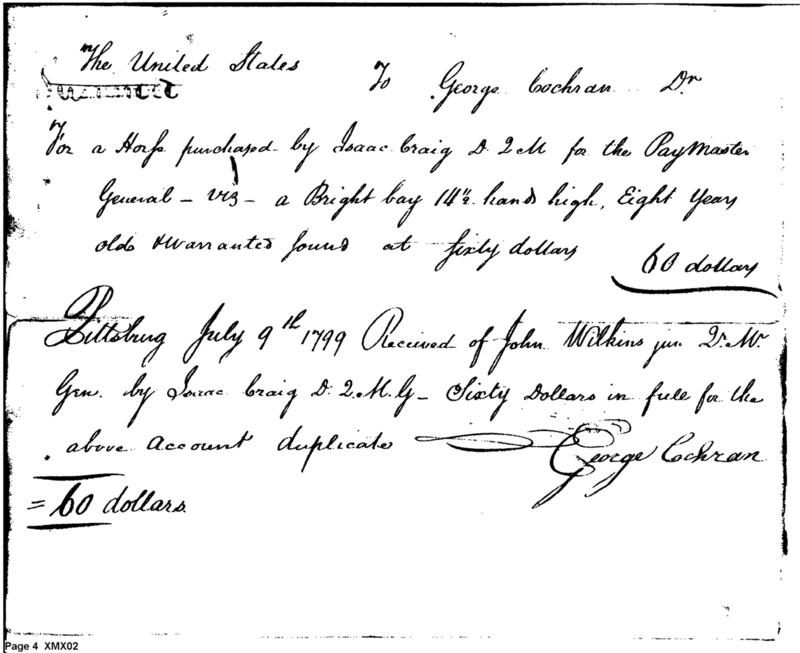 The United States To George Cochran Dr
For a Horse purchased by Isaac Craig D. Q M for the PayMaster
General – viz – a Bright bay 14½ hands high, Eight Years
old & Warranted sound at sixty dollars 60 dollars
Pittsburg July 9th 1799 Received of John Wilkins jun Qr. Mr.
Gen. by Isaac Craig D. Q. M. G – Sixty Dollars in full for the
above account duplicate George Cochran
= 60 dollars.
Page 4 XMX02